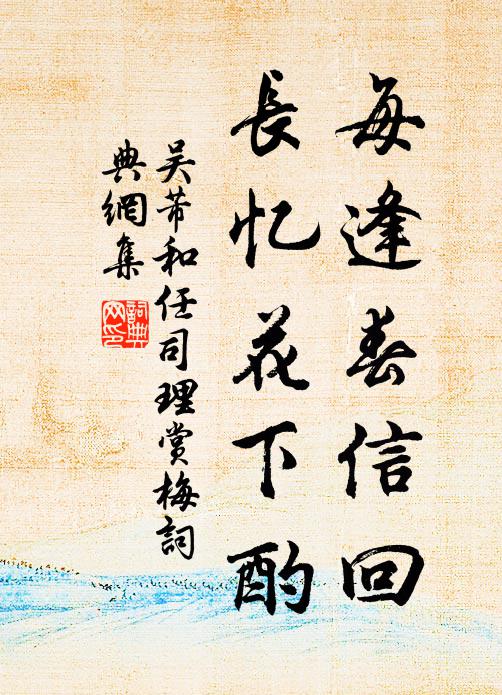 每逢春信回
長忆花下酌
吴芾和任司理赏梅詞
典網集
詞典网印